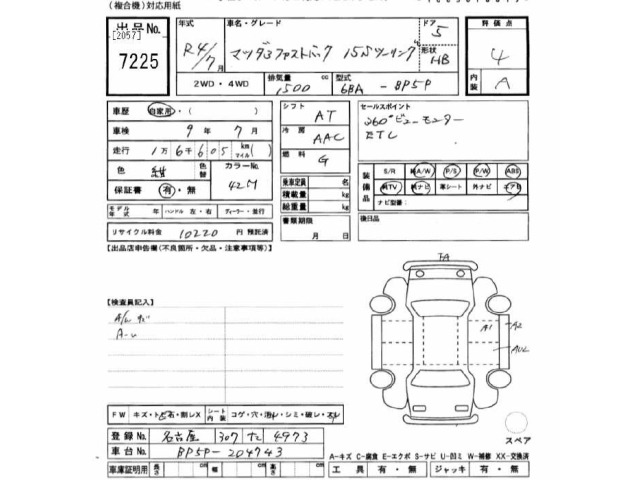 (複合機)対応用紙
出品No. [2057] 7225
年式 R4/7月
車名・グレード マツダ3ファストバック 15Sツーリング
ドア 5
形状 HB
2WD・4WD
排気量 1500 cc
型式 6BA - BP5P
評価点 4
内装 A
車歴 自家用・( )
車検 9年 7月
走行 1万6千605 km(マイル)
色 紺 色替 カラーNo. 42M
保証書 有・無
モデル年式 年 ハンドル 左・右 ディーラー・並行
リサイクル料金 10220 円 預託済
シフト AT
冷房 AAC
燃料 G
乗車定員 名
積載量 kg
総重量 kg
書類期限 月 日
セールスポイント
360°ビューモニター
ETC
装備品 S/R 純A/W P/S P/W ABS
純TV 純ナビ 革シート 外ナビ エアB
ナビ型番:
後日品
【出品店申告欄(不良箇所・欠品・注意事項等)】
【検査員記入】
A/W キズ
A-U
FA
A1 A2
AU2
スペア
FW キズ・ト石・削レX シート内装 コゲ・穴・汚レ・シミ・破レ・スレ
登録No. 名古屋 307 た 4973
車台No. BP5P-204743
車庫証明用 長さ cm 幅 cm 高さ cm
A-キズ C-腐食 E-エクボ S-サビ U-凹ミ W-補修 XX-交換済
工具 有・無 ジャッキ 有・無